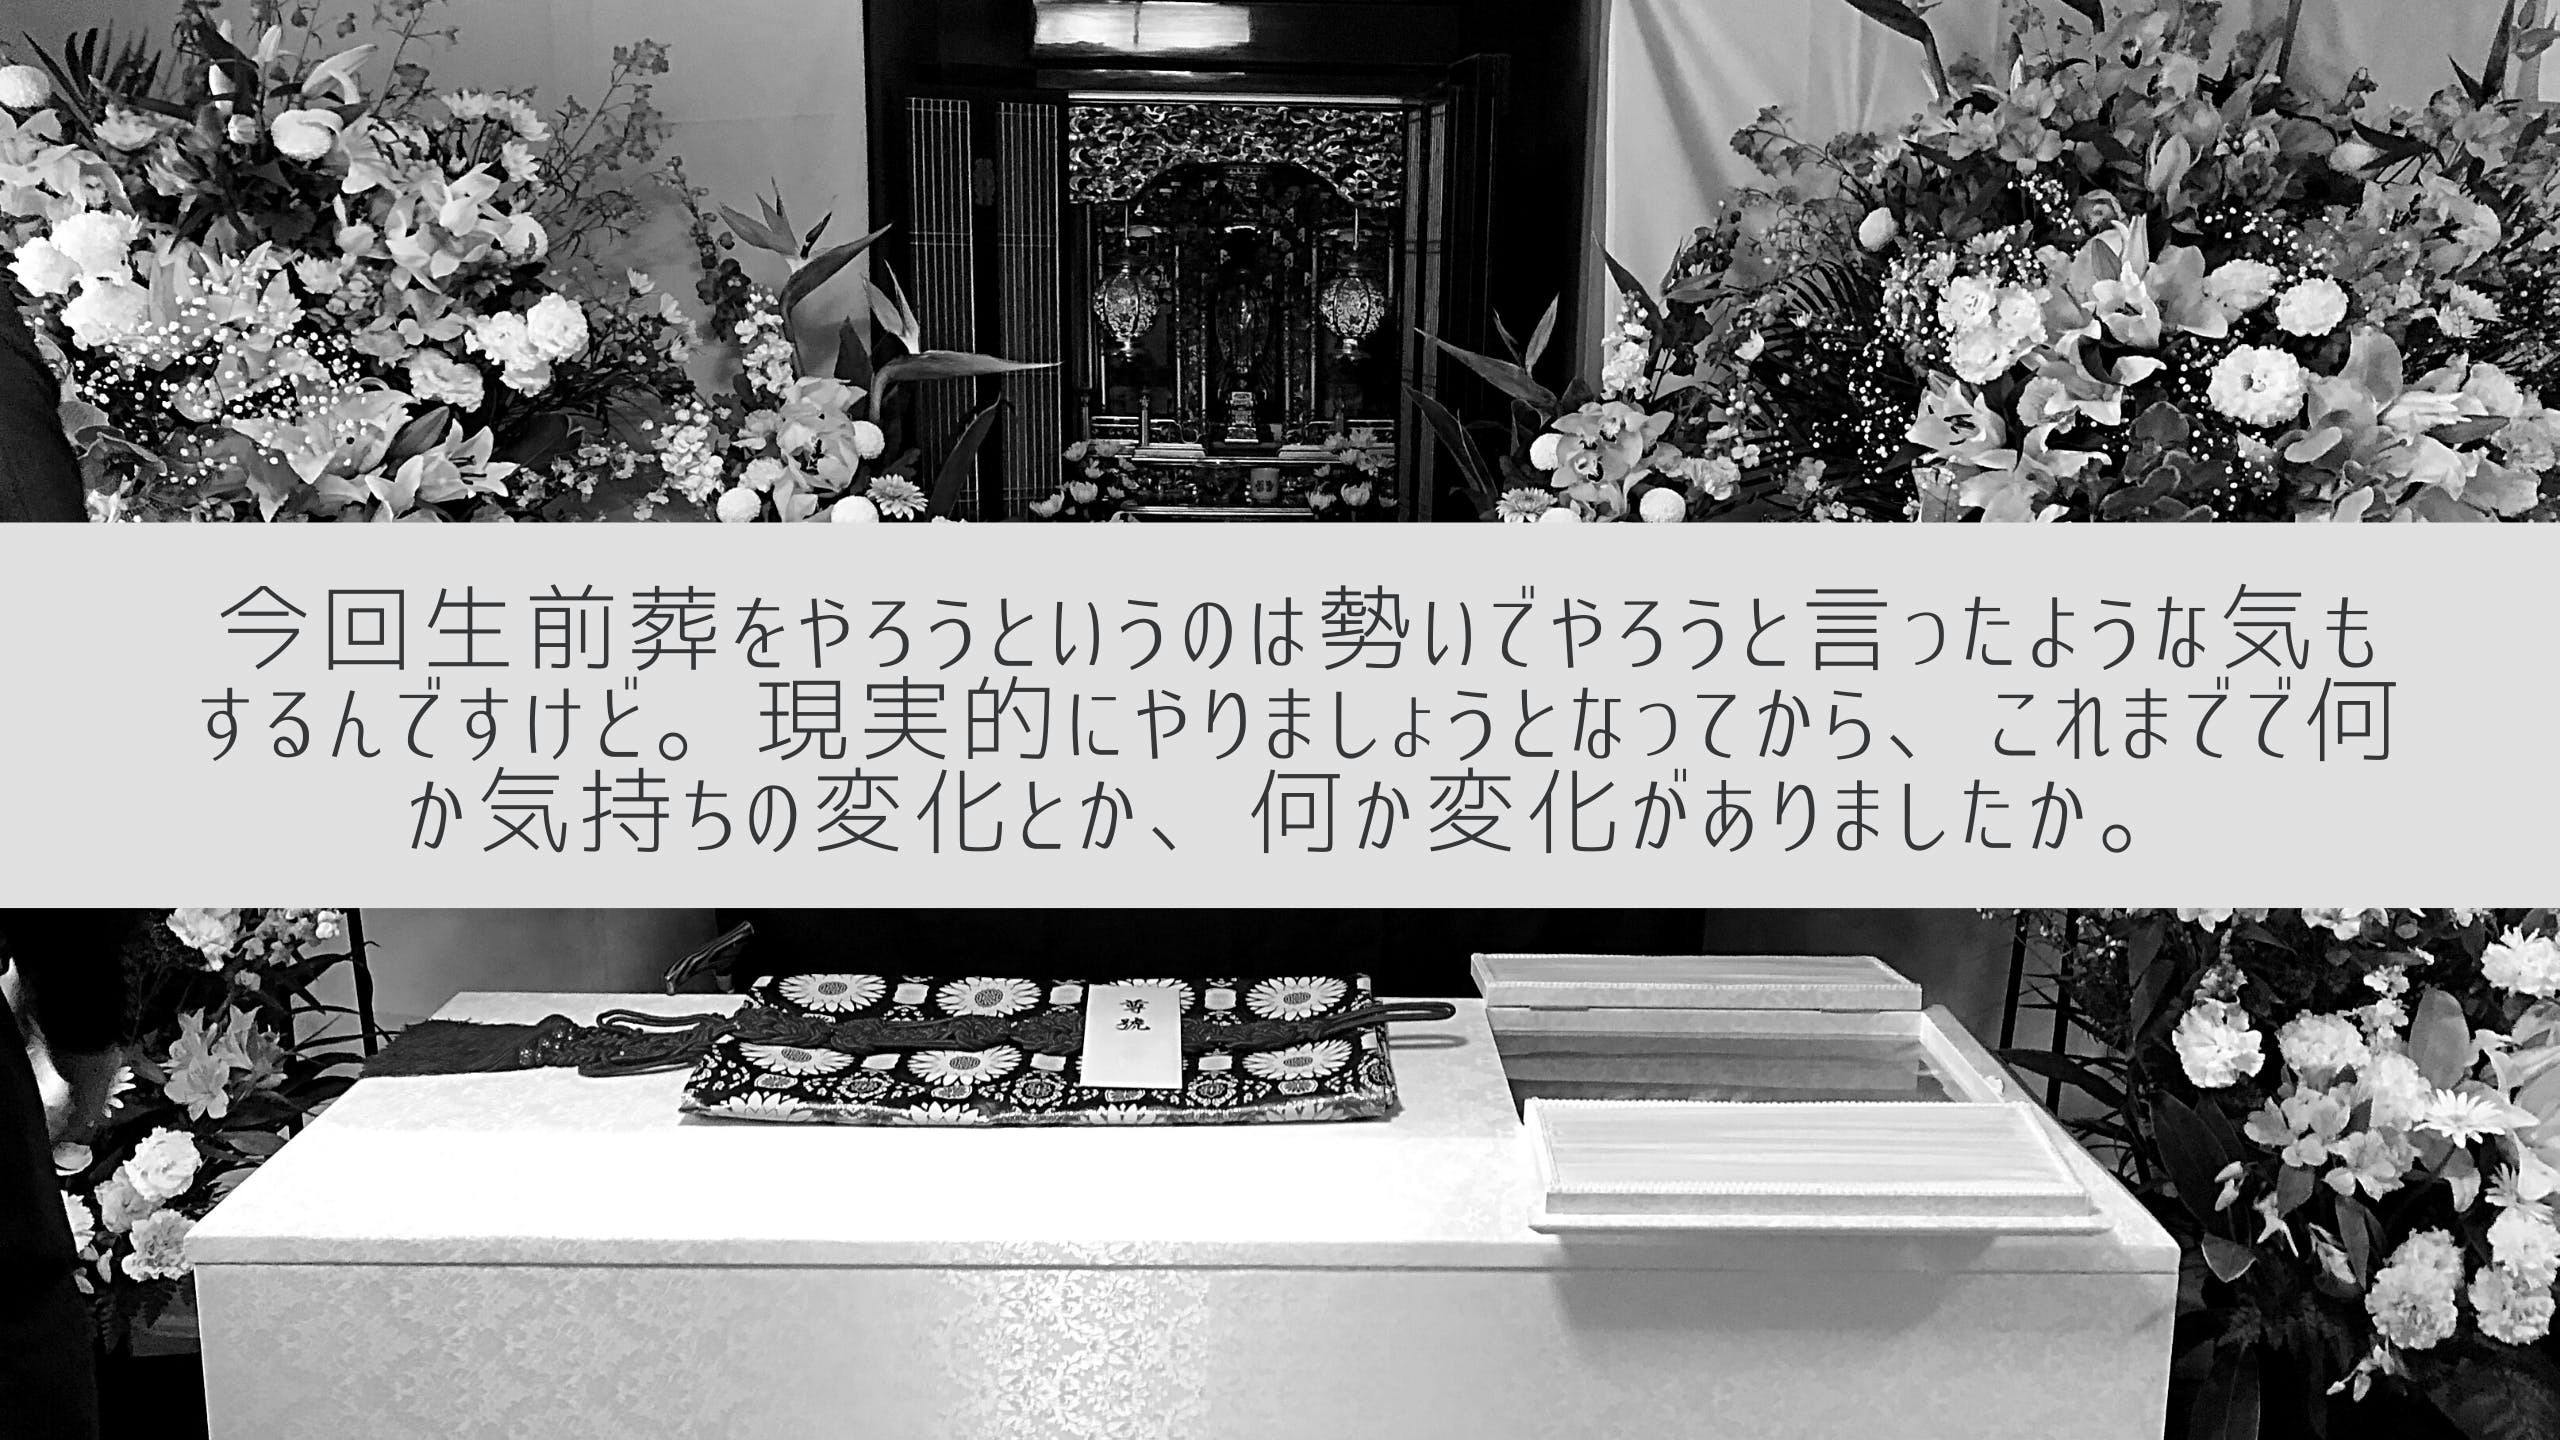 今回生前葬をやろうというのは勢いでやろうと言ったような気も
するんですけど。現実的にやりましょうとなってから、これまでで何
か気持ちの変化とか、何か変化がありましたか。
尊號